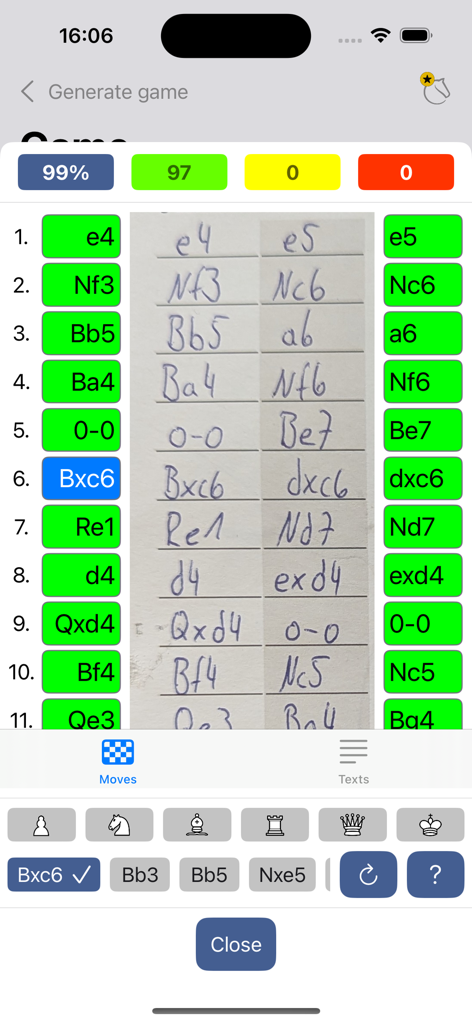 16:06
Generate game
Game
99% 97 0 0
1. e4 e4 e5 e5
2. Nf3 Nf3 Nc6 Nc6
3. Bb5 Bb5 a6 a6
4. Ba4 Ba4 Nf6 Nf6
5. 0-0 0-0 Be7 Be7
6. Bxc6 Bxc6 dxc6 dxc6
7. Re1 Re1 Nd7 Nd7
8. d4 d4 exd4 exd4
9. Qxd4 Qxd4 0-0 0-0
10. Bf4 Bf4 Nc5 Nc5
11. Qe3 Qe3 Bg4 Bg4
Moves Texts
Bxc6 ✓ Bb3 Bb5 Nxe5 ?
Close